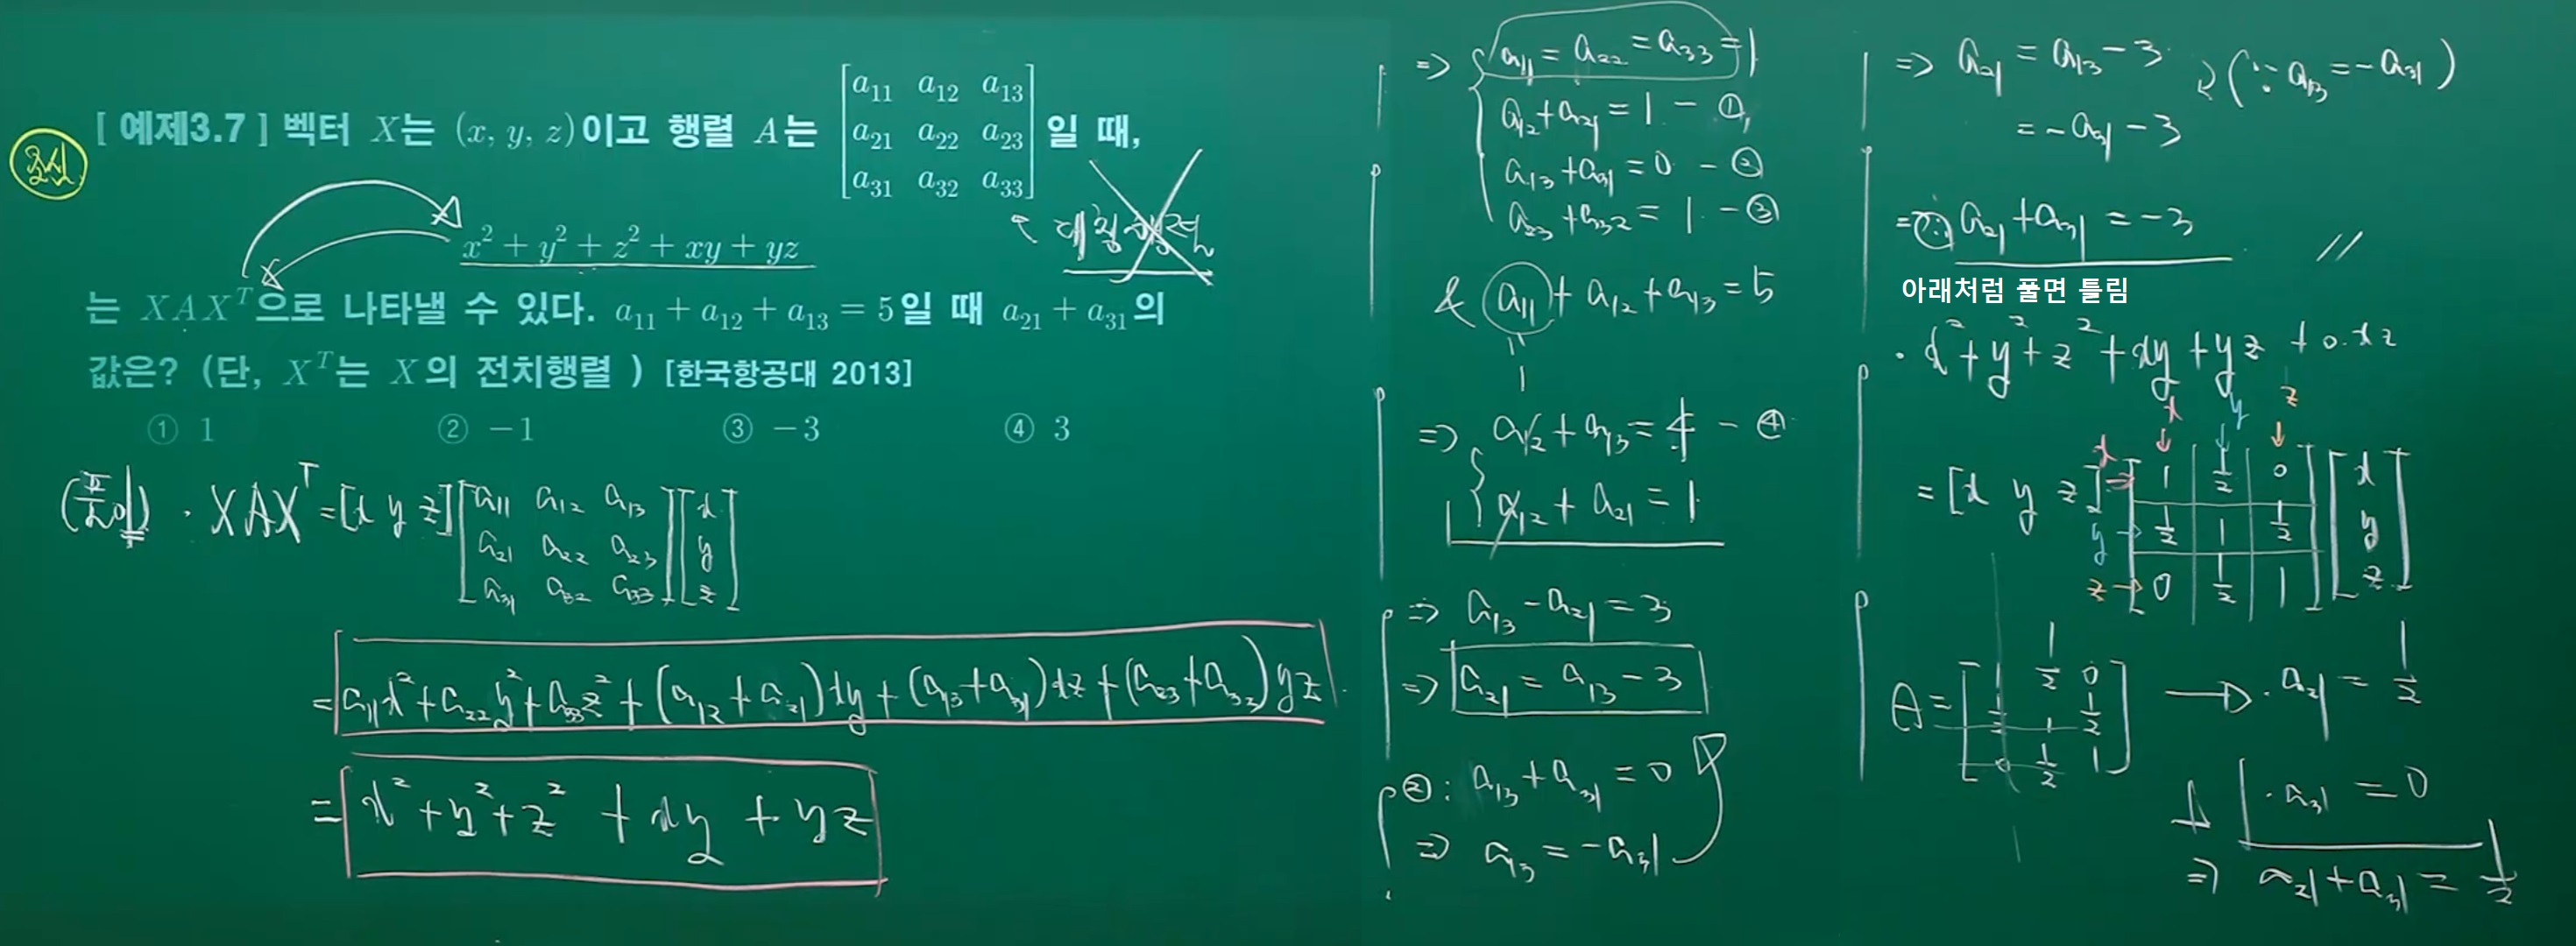 조심
[ 예제3.7 ] 벡터 X는 (x, y, z)이고 행렬 A는 [a₁₁ a₁₂ a₁₃
a₂₁ a₂₂ a₂₃
a₃₁ a₃₂ a₃₃] 일 때,
대칭행렬
x² + y² + z² + xy + yz
는 XAXᵀ으로 나타낼 수 있다. a₁₁ + a₁₂ + a₁₃ = 5일 때 a₂₁ + a₃₁의
값은? (단, Xᵀ는 X의 전치행렬 ) [한국항공대 2013]
① 1 ② −1 ③ −3 ④ 3
(풀이) · XAXᵀ = [x y z] [a₁₁ a₁₂ a₁₃
a₂₁ a₂₂ a₂₃
a₃₁ a₃₂ a₃₃] [x
y
z]
= a₁₁x² + a₂₂y² + a₃₃z² + (a₁₂ + a₂₁)xy + (a₁₃ + a₃₁)xz + (a₂₃ + a₃₂)yz
= x² + y² + z² + xy + yz
⇒ { a₁₁ = a₂₂ = a₃₃ = 1
a₁₂ + a₂₁ = 1 − ①
a₁₃ + a₃₁ = 0 − ②
a₂₃ + a₃₂ = 1 − ③
& a₁₁ + a₁₂ + a₁₃ = 5
"
1
⇒ { a₁₂ + a₁₃ = 4 − ④
a₁₂ + a₂₁ = 1
⇒ a₁₃ − a₂₁ = 3
⇒ a₂₁ = a₁₃ − 3
②: a₁₃ + a₃₁ = 0
⇒ a₁₃ = −a₃₁
⇒ a₂₁ = a₁₃ − 3 (∵ a₁₃ = −a₃₁)
= −a₃₁ − 3
⇒ ∴ a₂₁ + a₃₁ = −3 //
아래처럼 풀면 틀림
· x² + y² + z² + xy + yz + 0·xz
x y z
= [x y z] x→ [1 ½ 0
y→ ½ 1 ½
z→ 0 ½ 1] [x
y
z]
A = [1 ½ 0
½ 1 ½
0 ½ 1] → · a₂₁ = ½
+ · a₃₁ = 0
⇒ a₂₁ + a₃₁ = ½